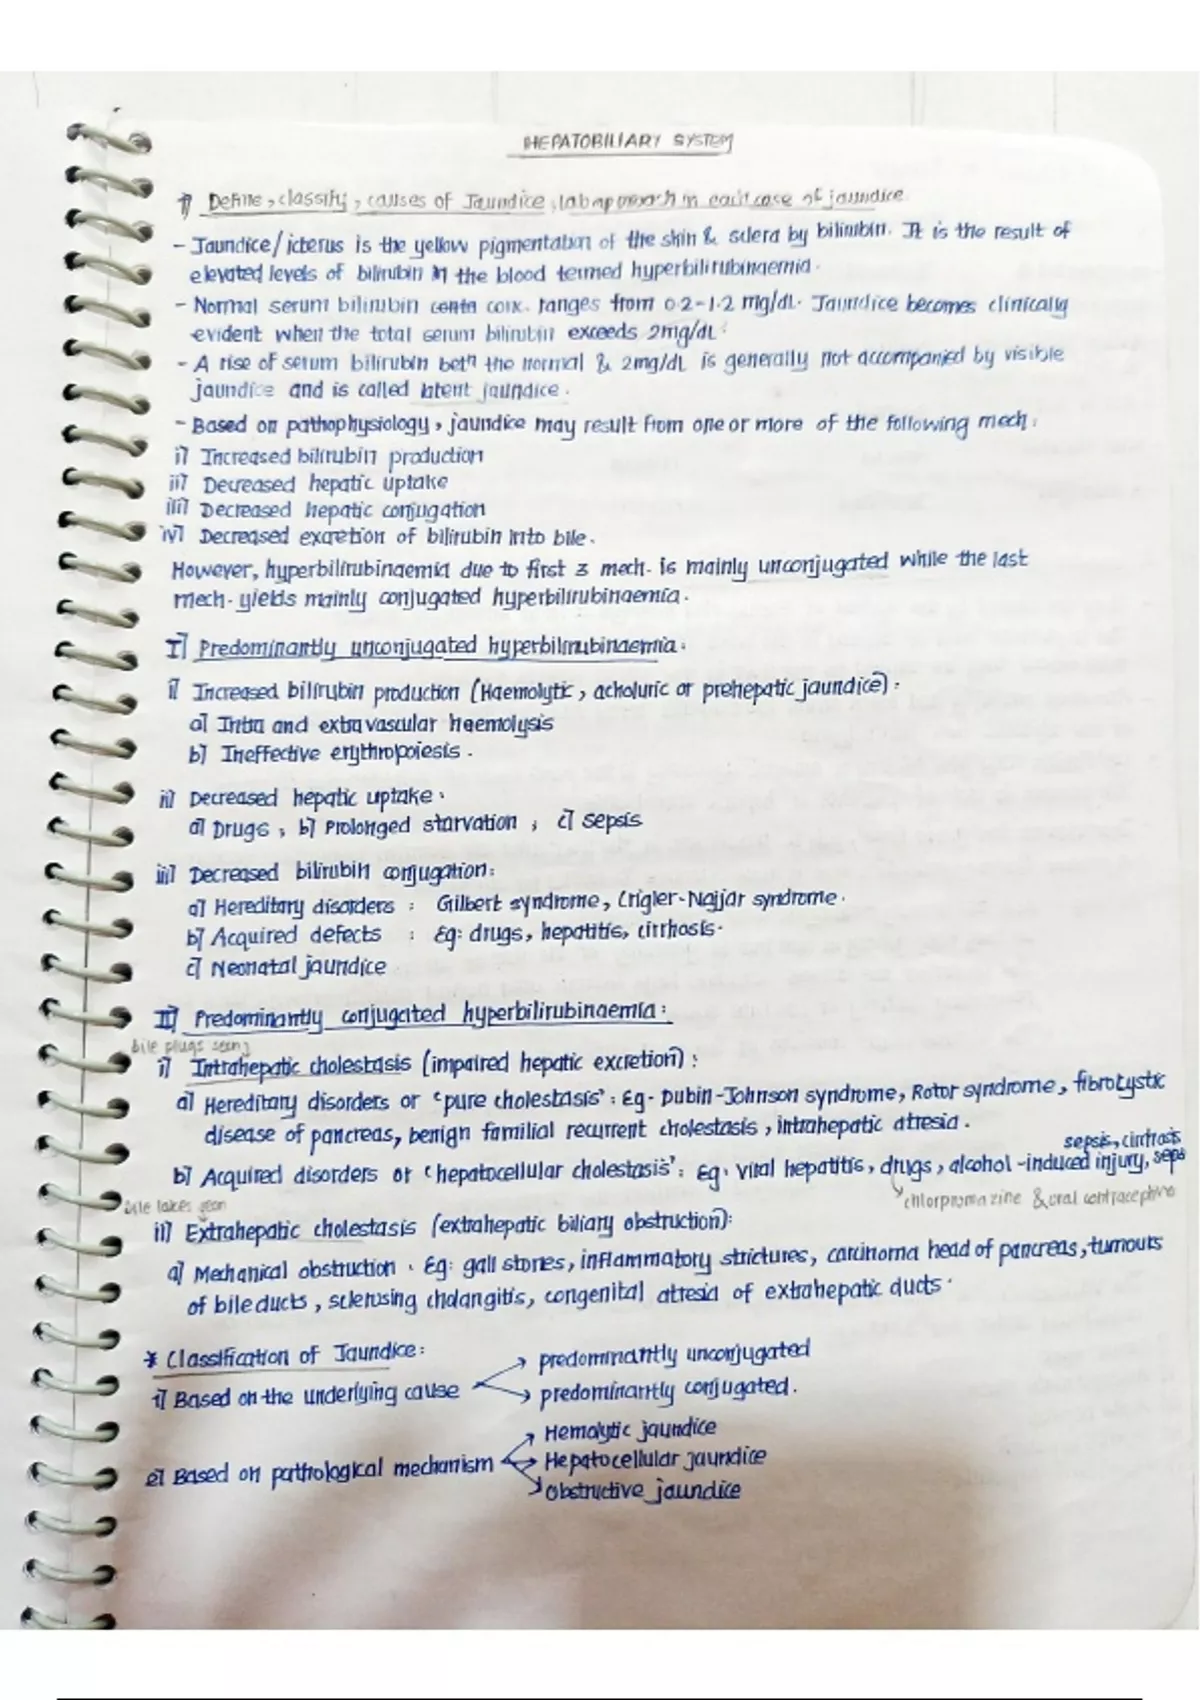 HEPATOBILIARY SYSTEM
1] Define, classify, causes of Jaundice, lab approach in each case of jaundice
- Jaundice/icterus is the yellow pigmentation of the skin & sclera by bilirubin. It is the result of
elevated levels of bilirubin in the blood termed hyperbilirubinaemia.
- Normal serum bilirubin conc. ranges from 0.2-1.2 mg/dL. Jaundice becomes clinically
evident when the total serum bilirubin exceeds 2mg/dL.
- A rise of serum bilirubin betn the normal & 2mg/dL is generally not accompanied by visible
jaundice and is called latent jaundice.
- Based on pathophysiology, jaundice may result from one or more of the following mech:
i] Increased bilirubin production
ii] Decreased hepatic uptake
iii] Decreased hepatic conjugation
iv] Decreased excretion of bilirubin into bile.
However, hyperbilirubinaemia due to first 3 mech. is mainly unconjugated while the last
mech. yields mainly conjugated hyperbilirubinaemia.
I] Predominantly unconjugated hyperbilirubinaemia:
i] Increased bilirubin production (Haemolytic, acholuric or prehepatic jaundice):
a] Intra and extravascular haemolysis
b] Ineffective erythropoiesis.
ii] Decreased hepatic uptake.
a] Drugs, b] Prolonged starvation, c] sepsis
iii] Decreased bilirubin conjugation:
a] Hereditary disorders : Gilbert syndrome, Crigler-Najjar syndrome.
b] Acquired defects : Eg: drugs, hepatitis, cirrhosis.
c] Neonatal jaundice
II] Predominantly conjugated hyperbilirubinaemia:
bile plugs seen
i] Intrahepatic cholestasis (impaired hepatic excretion):
a] Hereditary disorders or 'pure cholestasis': Eg. Dubin-Johnson syndrome, Rotor syndrome, fibrocystic
disease of pancreas, benign familial recurrent cholestasis, intrahepatic atresia.
sepsis, cirrhosis
b] Acquired disorders or 'hepatocellular cholestasis': Eg. viral hepatitis, drugs, alcohol-induced injury, seps
chlorpromazine & oral contraceptive
bile lakes seen
ii] Extrahepatic cholestasis (extrahepatic biliary obstruction):
a] Mechanical obstruction. Eg: gall stones, inflammatory strictures, carcinoma head of pancreas, tumours
of bile ducts, sclerosing cholangitis, congenital atresia of extrahepatic ducts.
* Classification of Jaundice:
→ predominantly unconjugated
1] Based on the underlying cause
→ predominantly conjugated.
→ Hemolytic jaundice
2] Based on pathological mechanism → Hepatocellular jaundice
→ obstructive jaundice